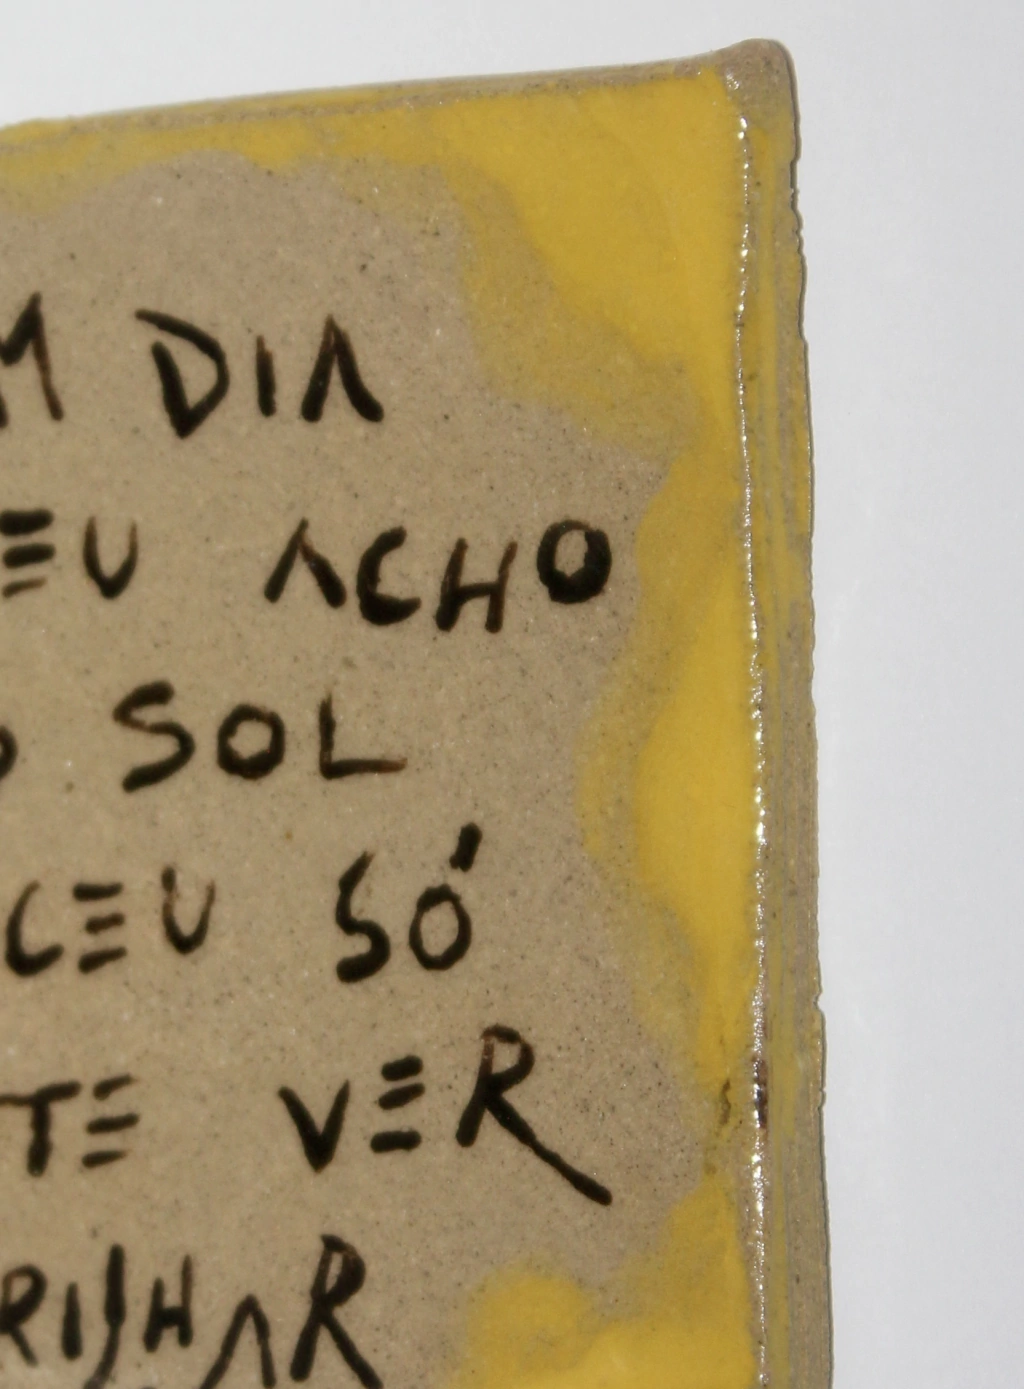 M DIA
EU ACHO
O SOL
CEU SÓ
TE VER
RILHAR